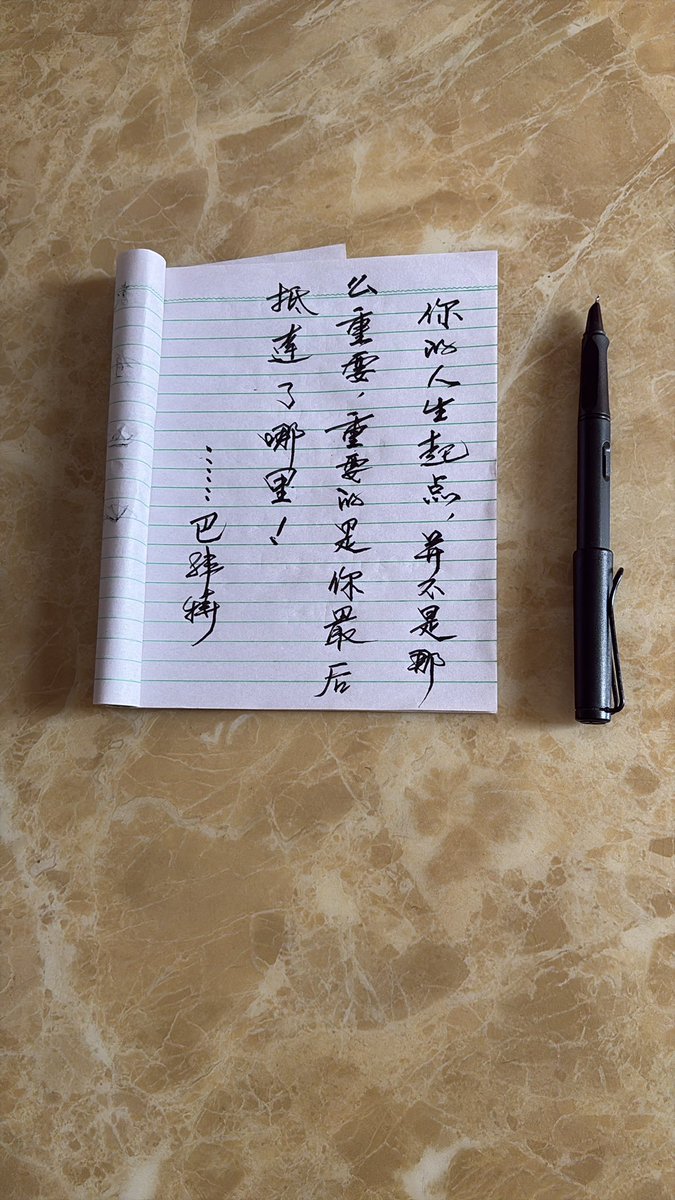 你的人生起点，并不是那
么重要，重要的是你最后
抵达了哪里！
……巴菲特